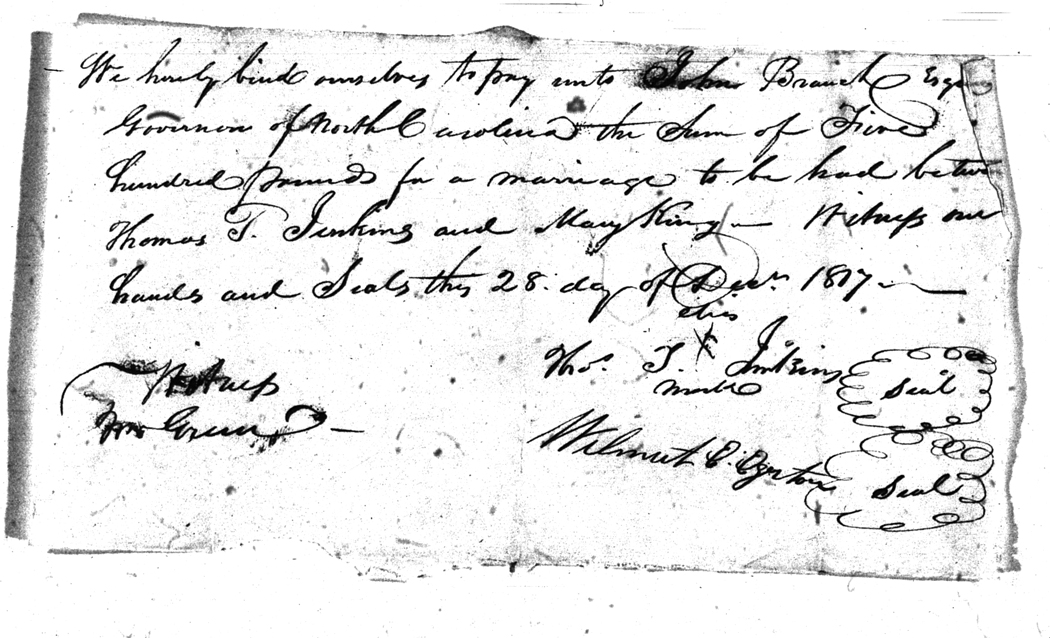 We hereby bind ourselves to pay unto John Branch Esqr
Governor of North Carolina the Sum of Five
hundred pounds for a marriage to be had betwn
Thomas T. Jinkins and Mary King — Witness our
hands and Seals this 28. day of Decr. 1817 —
his
Thos. T. X Jinkins Seal
mark
Witness
Wm Green
Wilmut E. Egerton Seal